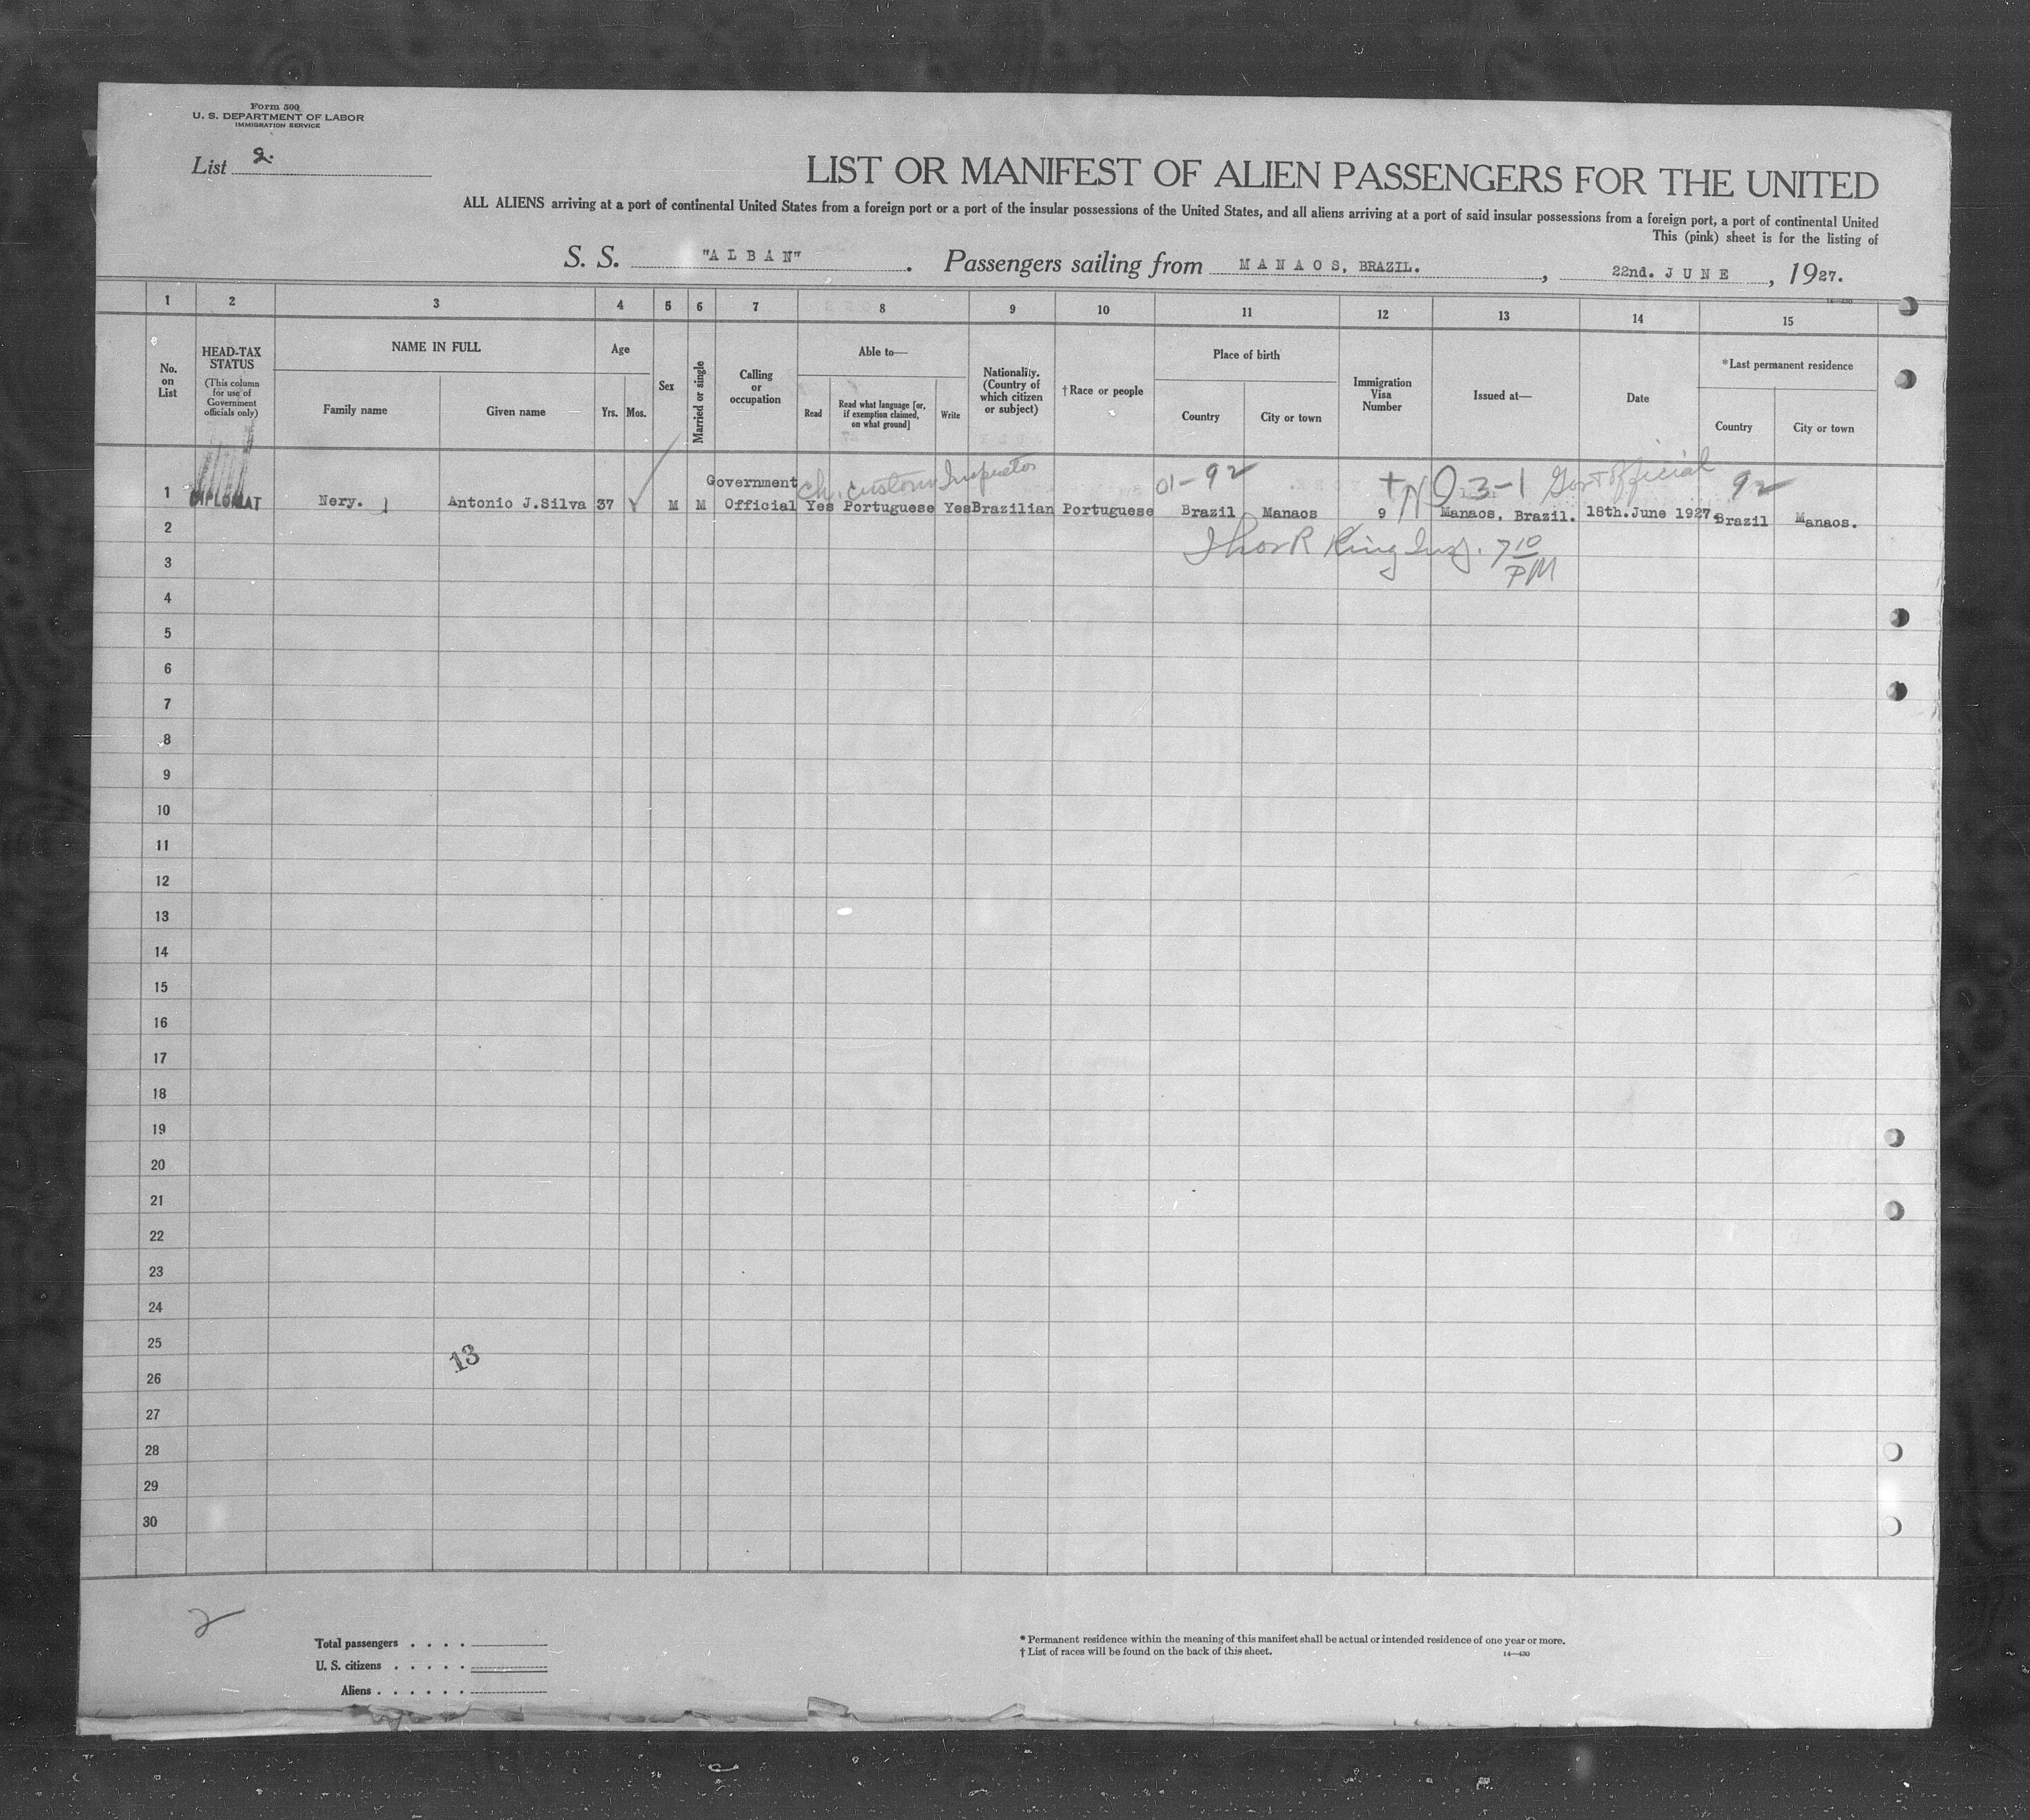 Form 500
U. S. DEPARTMENT OF LABOR
IMMIGRATION SERVICE
List 2.
LIST OR MANIFEST OF ALIEN PASSENGERS FOR THE UNITED
ALL ALIENS arriving at a port of continental United States from a foreign port or a port of the insular possessions of the United States, and all aliens arriving at a port of said insular possessions from a foreign port, a port of continental United
This (pink) sheet is for the listing of
S. S. "ALBAN". Passengers sailing from MANAOS, BRAZIL., 22nd. JUNE, 1927.
14—430
1 2 3 4 5 6 7 8 9 10 11 12 13 14 15
No. on List
HEAD-TAX STATUS
(This column for use of Government officials only)
NAME IN FULL
Family name Given name
Age
Yrs. Mos.
Sex
Married or single
Calling or occupation
Able to—
Read Read what language [or, if exemption claimed, on what ground] Write
Nationality. (Country of which citizen or subject)
†Race or people
Place of birth
Country City or town
Immigration Visa Number
Issued at—
Date
*Last permanent residence
Country City or town
Ch. Customs Inspector 01-92 + NO 3-1 Gov't Official 92
1 DIPLOMAT Nery. Antonio J.Silva 37 M M Government Official Yes Portuguese Yes Brazilian Portuguese Brazil Manaos 9 Manaos, Brazil. 18th.June 1927. Brazil Manaos.
2
King Insp. 7 10 PM
3
4
5
6
7
8
9
10
11
12
13
14
15
16
17
18
19
20
21
22
23
24
25
13
26
27
28
29
30
2
Total passengers . . . .
U. S. citizens . . . . .
Aliens . . . . . .
* Permanent residence within the meaning of this manifest shall be actual or intended residence of one year or more.
† List of races will be found on the back of this sheet.
14—430